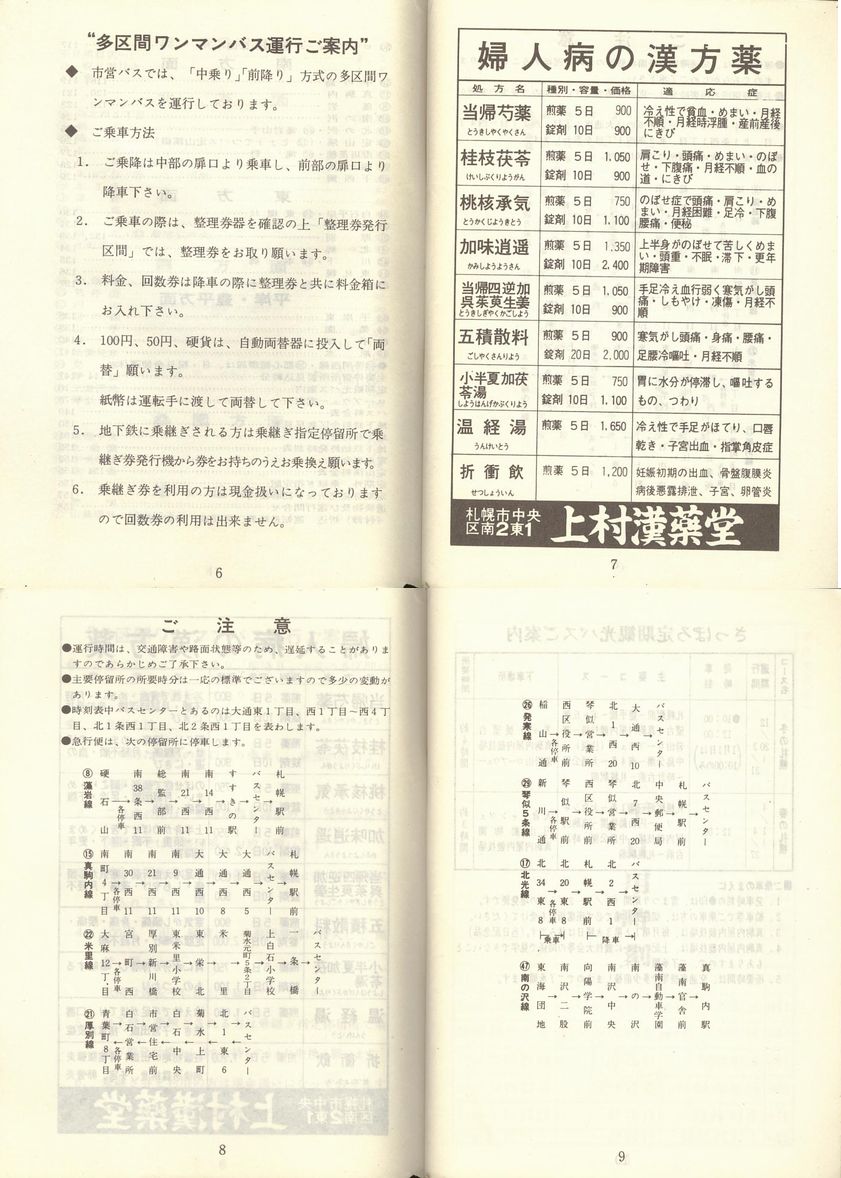 “多区間ワンマンバス運行ご案内”
◆ 市営バスでは、「中乗り」「前降り」方式の多区間ワ
ンマンバスを運行しております。
◆ ご乗車方法
1. ご乗降は中部の扉口より乗車し、前部の扉口より
降車下さい。
2. ご乗車の際は、整理券器を確認の上「整理券発行
区間」では、整理券をお取り願います。
3. 料金、回数券は降車の際に整理券と共に料金箱に
お入れ下さい。
4. 100円、50円、硬貨は、自動両替器に投入して「両
替」願います。
紙幣は運転手に渡して両替して下さい。
5. 地下鉄に乗継ぎされる方は乗継ぎ指定停留所で乗
継ぎ券発行機から券をお持ちのうえお乗換え願います。
6. 乗継ぎ券を利用の方は現金扱いになっております
ので回数券の利用は出来ません。
6
婦人病の漢方薬
処方名 種別・容量・価格 適応症
当帰芍薬 煎薬 5日 900 冷え性で貧血・めまい・月経
不順・月経時浮腫・産前産後
とうきしやくやくさん 錠剤 10日 900 にきび
桂枝茯苓 煎薬 5日 1.050 肩こり・頭痛・めまい・のぼ
せ・下腹痛・月経不順・血の
けいしぶくりようがん 錠剤 10日 900 道・にきび
桃核承気 煎薬 5日 750 のぼせ症で頭痛・肩こり・め
まい・月経困難・足冷・下腹
とうかくじようきとう 錠剤 10日 1.100 腰痛・便秘
加味逍遥 煎薬 5日 1.350 上半身がのぼせて苦しくめま
い・頭重・不眠・滞下・更年
かみしようようさん 錠剤 10日 2.400 期障害
当帰四逆加 煎薬 5日 1.050 手足冷え血行弱く寒気がし頭
呉茱萸生姜 痛・しもやけ・凍傷・月経不
とうきしぎやくかごしよう 錠剤 10日 900 順
五積散料 煎薬 5日 900 寒気がし頭痛・身痛・腰痛・
ごしやくさんりよう 錠剤 20日 2,000 足腰冷嘔吐・月経不順
小半夏加茯 煎薬 5日 750 胃に水分が停滞し、嘔吐する
苓湯
しようはんげかぶくりよう 錠剤 10日 1.100 もの、つわり
温経湯 煎薬 5日 1.650 冷え性で手足がほてり、口唇
うんけいとう 乾き・子宮出血・指掌角皮症
折衝飲 煎薬 5日 1,200 妊娠初期の出血、骨盤腹膜炎
せつしょういん 病後悪露排泄、子宮、卵管炎
札幌市中央
区南2東1 上村漢薬堂
7
ご注意
●運行時間は、交通障害や路面状態等のため、遅延することがありま
すのであらかじめご了承下さい。
●主要停留所の所要時分は一応の標準でございますので多少の変動が
あります。
●時刻表中バスセンターとあるのは大通東1丁目、西1丁目~西4丁
目、北1条西1丁目、北2条西1丁目を表わします。
●急行便は、次の停留所に停車します。
⑧藻岩線 硬石山→各停車 南38条西11→総監部前→南21西11→南14西11→すすきの駅→バスセンター→札幌駅前
⑮真駒内線 南町4丁目→各停車 南30西11→南21西11→南9西11→大通西10→大通西8→大通西5→バスセンター→札幌駅前
㉒米里線 大麻12丁目→各停車 宮町西→厚別新川橋→東米里小学校→東栄北→米里→菊水元町5条2丁目→上白石小学校→一条橋→バスセンター
㉑厚別線 青葉町8丁目→各停車 白石営業所→市営住宅前→白石中央→菊水上町→北1東6→バスセンター
8
㉖発寒線 稲山通→各停車 西区役所前→琴似営業所→北1西20→大通西10→バスセンター
㉙琴似5条線 新川通→各停車 琴似駅前→西区役所前→琴似営業所→北7西20→中央郵便局→札幌駅前→バスセンター
⑰北光線 北34東8→各停車 北20東8→札幌駅前→北2西1→バスセンター
乗車 降車
㊼南の沢線 東海団地→南沢二股→向陽学院前→南沢中央→南の沢→藻南自動車学園→藻南官舎前→真駒内駅
9